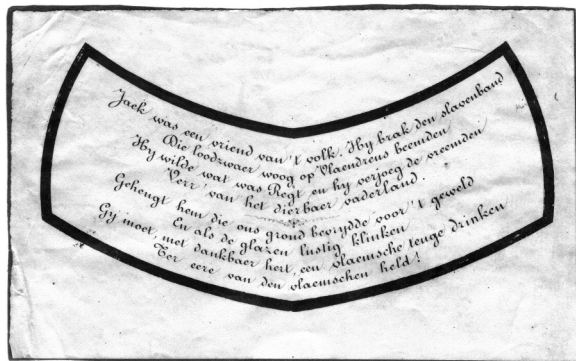 Jack was een vriend van 't volk. Hy brak den slavenband
Die loodzwaer woog op Vlaendrens beemden
Hy wilde wat was Regt en hy verjoeg de vreemden
Verr' van het dierbaer vaderland.
Gehengt hem die ons grond bevrydde voor 't geweld
En als de glazen lustig klinken
Gy moet, met dankbaer hert, een vlaemsche teuge drinken
Ter eere van den vlaemschen held!